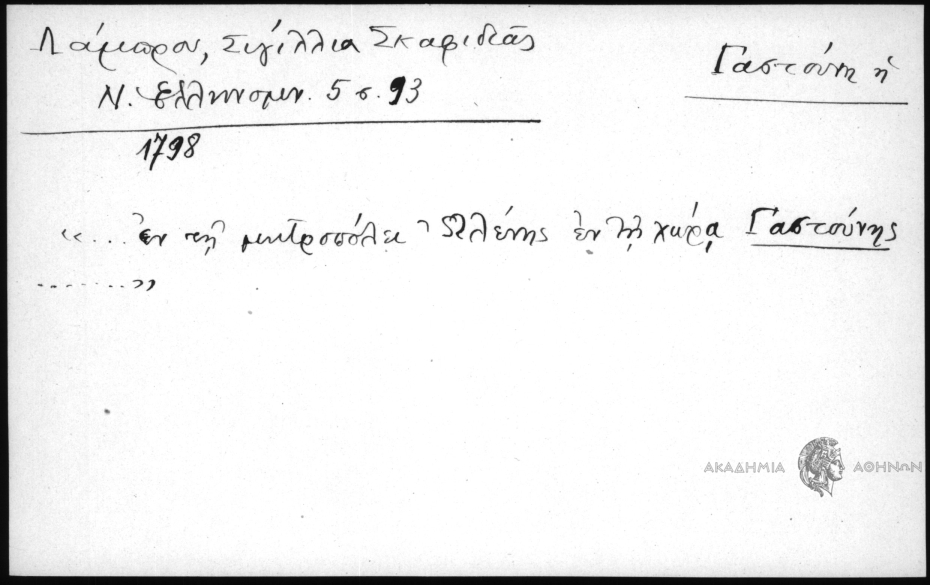 Λάμπρου, Σιγίλλια Σκαφιδιᾶς
Γαστούνη ἡ
Ν. Ἑλληνομν. 5 σ. 93
1798
«... ἐν τῇ μητροπόλει Ὠλένης ἐν τῇ χώρᾳ Γαστούνης
........»
ΑΚΑΔΗΜΙΑ ΑΘΗΝΩΝ